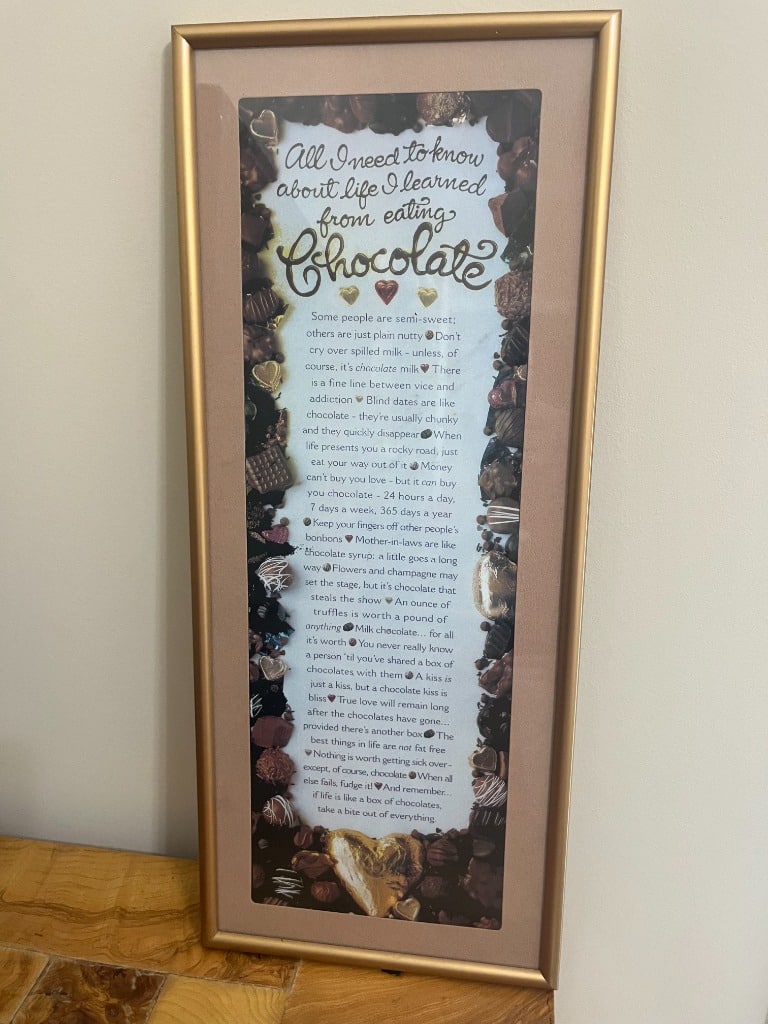 All I need to know
about life I learned
from eating
Chocolate
Some people are semi-sweet;
others are just plain nutty Don't
cry over spilled milk - unless, of
course, it's chocolate milk There
is a fine line between vice and
addiction Blind dates are like
chocolate - they're usually chunky
and they quickly disappear When
life presents you a rocky road, just
eat your way out of it Money
can't buy you love - but it can buy
you chocolate - 24 hours a day,
7 days a week, 365 days a year
Keep your fingers off other people's
bonbons Mother-in-laws are like
chocolate syrup: a little goes a long
way Flowers and champagne may
set the stage, but it's chocolate that
steals the show An ounce of
truffles is worth a pound of
anything Milk chocolate... for all
it's worth You never really know
a person 'til you've shared a box of
chocolates with them A kiss is
just a kiss, but a chocolate kiss is
bliss True love will remain long
after the chocolates have gone...
provided there's another box The
best things in life are not fat free
Nothing is worth getting sick over-
except, of course, chocolate When all
else fails, fudge it! And remember...
if life is like a box of chocolates,
take a bite out of everything.